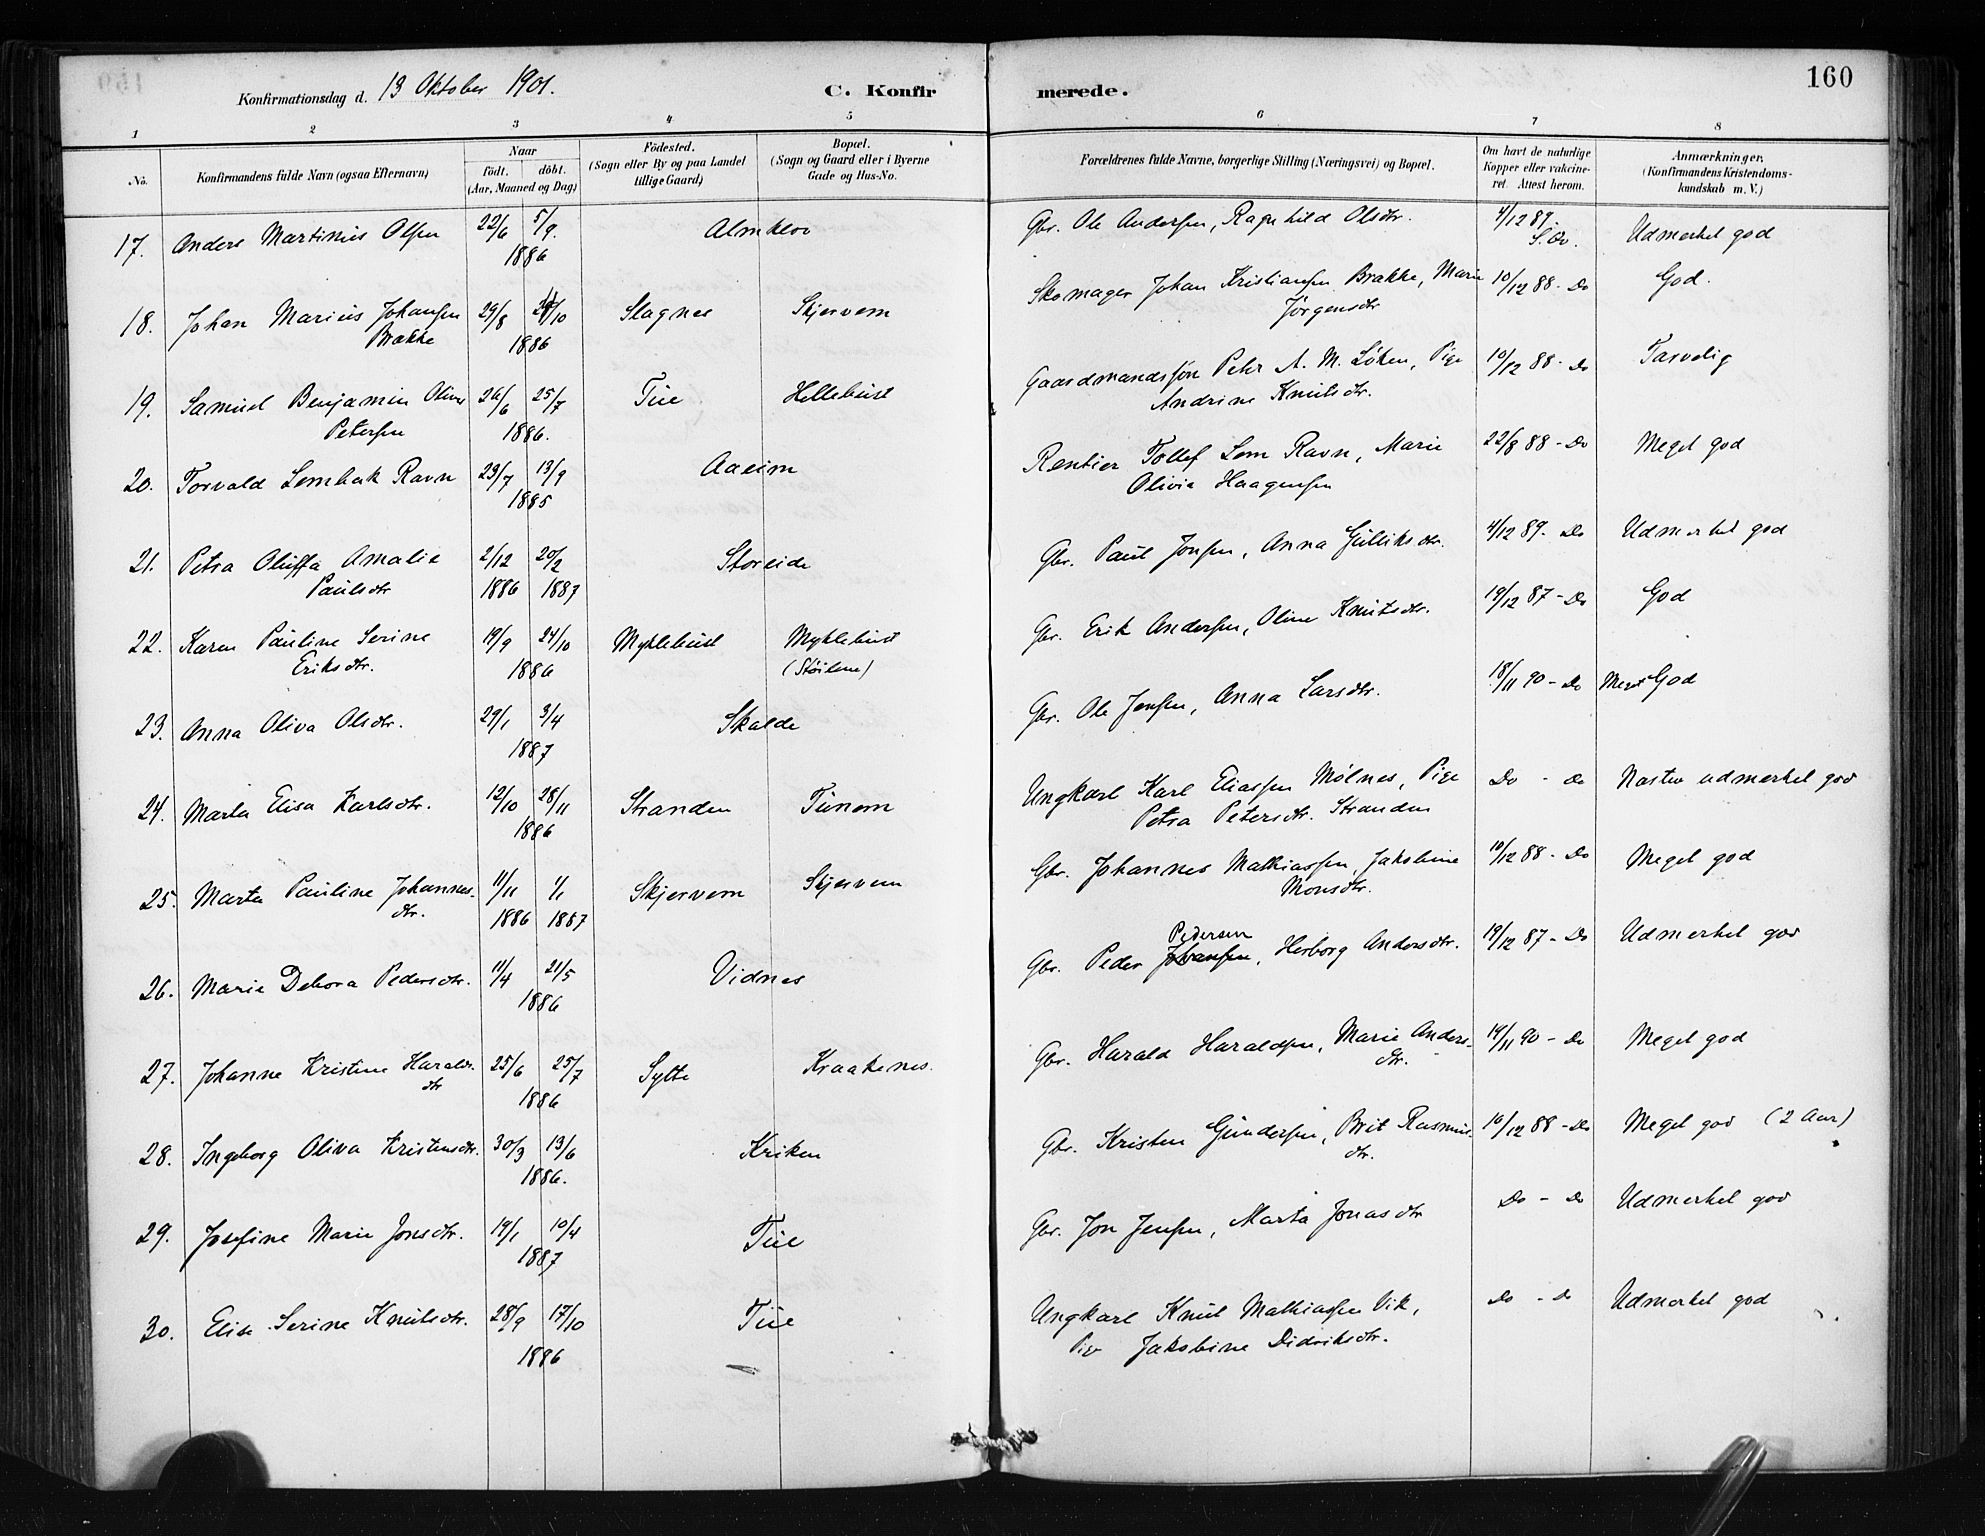 160
Konfirmationsdag d. 13 Oktober 1901. C. Konfirmerede.
1 2 3 4 5 6 7 8
No. Konfirmandens fulde Navn (ogsaa Efternavn) Naar födt. döbt. (Aar, Maaned og Dag) Födested. (Sogn eller By og paa Landet tillige Gaard) Bopæl. (Sogn og Gaard eller i Byerne Gade og Hus-No. Forældrenes fulde Navne, borgerlige Stilling (Næringsvei) og Bopæl. Om havt de naturlige Kopper eller vaccineret. Attest herom. Anmærkninger. (Konfirmandens Kristendomskundskab m. V.)
17. Anders Martinus Olsen 22/6 5/9. 1886 Almklov Gbr. Ole Andersen, Ragnhild Olsdtr. 4/12 89. S. Ov. Udmerket god
18. Johan Marius Johansen Brække 29/8 /10 1886 Slagnes Skjervem Skomager Johan Kristiansen Brække, Marie Jørgensdtr 10/12 88 - Do God.
19. Samuel Benjamin Oliver Petersen 26/6 25/7 1886. Tue Hellebust Gaardmandssøn Peter A. M. Løken, Pige Andrine Knutsdtr. 10/12 88 - Do Tarvelig
20. Torvald Lembak Ravn 23/7 13/9 1885 Aaeim Rentier Tollef Lem Ravn, Marie Olivia Haagensen 22/8 88 - Do Meget god
21. Petra Oluffa Amalie Paulsdtr 2/12 1886 20/2 1887 Storeide Gbr. Paul Jonsen, Anna Gulliksdtr. 4/12 89. Do Udmerket god
22. Karen Pauline Serine Eriksdtr. 19/9 24/10 1886 Myklebust Myklebust (Støilene) Gbr. Erik Andersen, Oline Knutsdtr. 19/12 87 - Do God
23. Anna Oliva Olsdtr. 29/1 3/4 1887 Skalde Gbr. Ole Jensen, Anna Larsdtr. 18/11 90 - Do Meget God
24. Marta Elisa Karlsdtr. 12/10 28/11 1886 Stranden Tunem Ungkarl Karl Eliassen Mølnes, Pige Petra Petersdtr. Stranden Do - do Næsten udmerket god
25. Marta Pauline Johannesdtr. 11/11 1886 1/1 1887 Skjervem Skjervem Gbr. Johannes Mathiassen, Jakobine Monsdtr. 10/12 88 - Do Meget god
26. Marie Debora Pedersdtr. 11/4 21/5 1886 Vidnes Gbr. Peder Johansen Pedersen, Herborg Andersdtr. 19/12 87 - Do Udmerket god
27. Johanne Kristine Haraldsdtr 25/6 25/7 1886 Sylte Kraakenes. Gbr. Harald Haraldsen, Marie Andersdtr. 19/11 90 - Do Meget god
28. Ingeborg Oliva Kristensdtr. 30/3 13/6 1886. Kriken Gbr. Kristen Gundersen, Brit Rasmusdtr. 10/12 88 - Do Meget god (2 Aar)
29. Josefine Marie Jonsdtr. 19/1 10/4 1887 Tue Gbr. Jon Jensen, Marta Jonasdtr Do - Do Udmerket god
30. Elise Serine Knutsdtr. 28/9 17/10 1886 Tue Ungkarl Knut Mathiassen Vik, Pige Jakobine Didriksdtr. Do - Do Udmerket god